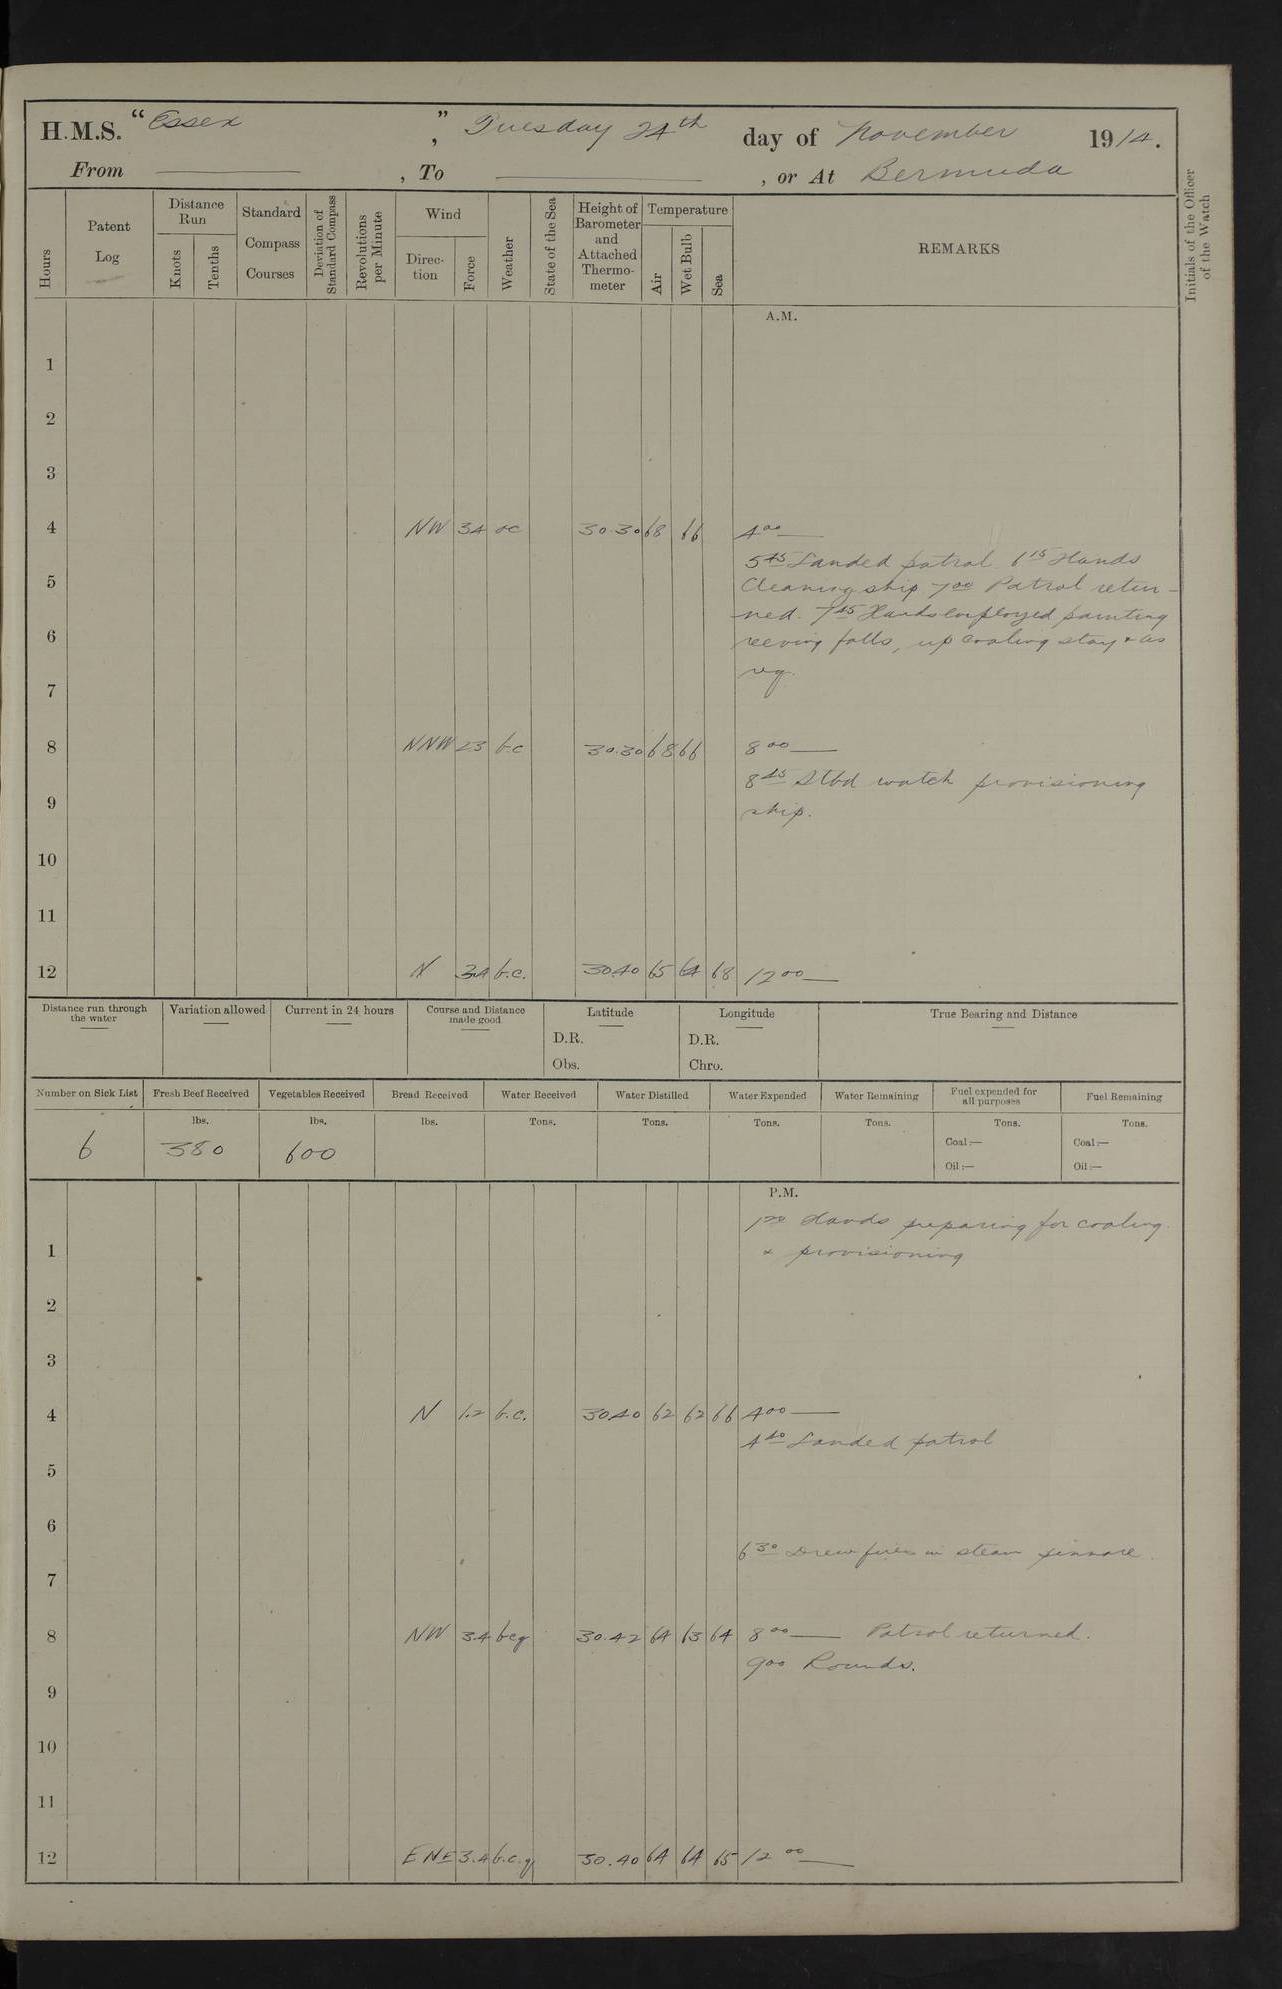 H.M.S. "Essex", Tuesday 24th day of November 1914.
From ——— , To ——— , or At Bermuda
Hours
Patent Log
Distance Run
Knots
Tenths
Standard Compass Courses
Deviation of Standard Compass
Revolutions per Minute
Wind
Direction
Force
Weather
State of the Sea
Height of Barometer and Attached Thermometer
Temperature
Air
Wet Bulb
Sea
REMARKS
Initials of the Officer of the Watch
A.M.
1
2
3
4 NW 34 oc 30.30 68 66 4 00 —
5 45 Landed patrol. 6 15 Hands
5 Cleaning ship 7 00 Patrol retur-
ned. 7 45 Hands employed painting
6 reeving falls, up coaling stay & as
req.
7
8 NNW 23 b.c 30.30 68 66 8 00 —
8 45 Stbd watch provisioning
9 ship.
10
11
12 N 34 b.c. 30.40 65 64 68 12 00 —
Distance run through the water
Variation allowed
Current in 24 hours
Course and Distance made good
Latitude
D.R.
Obs.
Longitude
D.R.
Chro.
True Bearing and Distance
Number on Sick List
Fresh Beef Received
Vegetables Received
Bread Received
Water Received
Water Distilled
Water Expended
Water Remaining
Fuel expended for all purposes
Fuel Remaining
lbs. lbs. lbs. Tons. Tons. Tons. Tons. Tons. Tons.
6 380 600
Coal :— Coal :—
Oil :— Oil :—
P.M.
Hands preparing for coaling
1 & provisioning
2
3
4 N 1.2 b.c. 30.40 62 62 66 4 00 —
Landed patrol
5
6
6 30 Drew fires in steam pinnace.
7
8 NW 3.4 bcq 30.42 64 63 64 8 00 — Patrol returned.
9 00 Rounds.
9
10
11
12 ENE 3.4 b.c.q 30.40 64 64 65 12 00 —